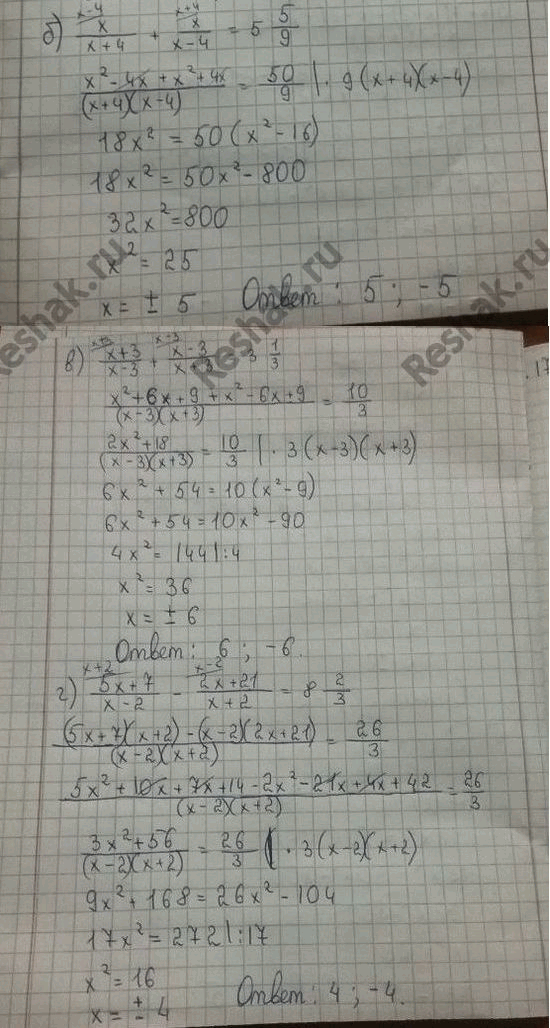 б) x-4 x/(x+4) + x+4 x/(x-4) = 5 5/9
(x² - 4x + x² + 4x)/((x+4)(x-4)) = 50/9 | · 9(x+4)(x-4)
18x² = 50(x² - 16)
18x² = 50x² - 800
32x² = 800
x² = 25
x = ± 5 Ответ: 5; -5
в) x+3 (x+3)/(x-3) + x-3 (x-3)/(x+3) = 3 1/3
(x² + 6x + 9 + x² - 6x + 9)/((x-3)(x+3)) = 10/3
(2x² + 18)/((x-3)(x+3)) = 10/3 | · 3(x-3)(x+3)
6x² + 54 = 10(x² - 9)
6x² + 54 = 10x² - 90
4x² = 144 | : 4
x² = 36
x = ± 6
Ответ: 6; -6.
г) x+2 (5x+7)/(x-2) - x-2 (2x+21)/(x+2) = 8 2/3
((5x+7)(x+2) - (x-2)(2x+21))/((x-2)(x+2)) = 26/3
(5x² + 10x + 7x + 14 - 2x² - 21x + 4x + 42)/((x-2)(x+2)) = 26/3
(3x² + 56)/((x-2)(x+2)) = 26/3 | · 3(x-2)(x+2)
9x² + 168 = 26x² - 104
17x² = 272 | : 17
x² = 16
x = ± 4 Ответ: 4; -4.
Reshak.ru
Reshak.ru
Reshak.ru
.17